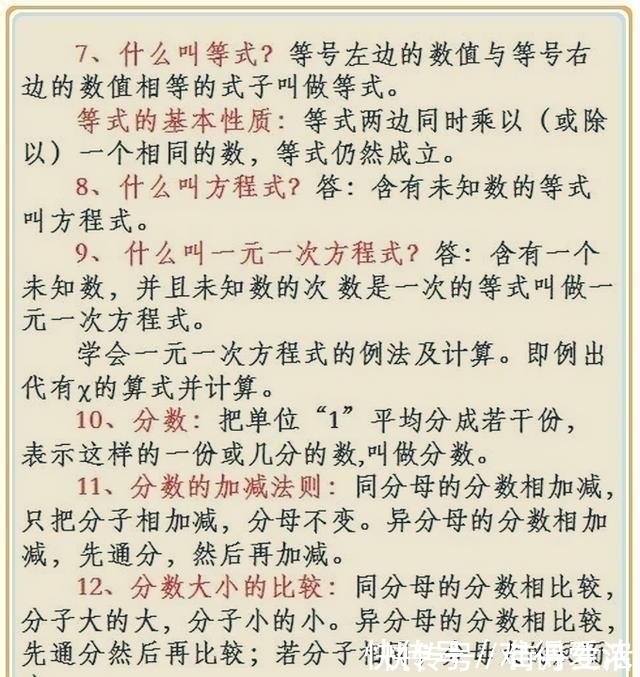 7、什么叫等式？等号左边的数值与等号右
边的数值相等的式子叫做等式。
等式的基本性质：等式两边同时乘以（或除
以）一个相同的数，等式仍然成立。
8、什么叫方程式？答：含有未知数的等式
叫方程式。
9、什么叫一元一次方程式？答：含有一个
未知数，并且未知数的次 数是一次的等式叫做一
元一次方程式。
学会一元一次方程式的例法及计算。即例出
代有χ的算式并计算。
10、分数：把单位“1”平均分成若干份，
表示这样的一份或几分的数,叫做分数。
11、分数的加减法则：同分母的分数相加减，
只把分子相加减，分母不变。异分母的分数相加
减，先通分，然后再加减。
12、分数大小的比较：同分母的分数相比较，
分子大的大，分子小的小。异分母的分数相比较，
先通分然后再比较；若分子相